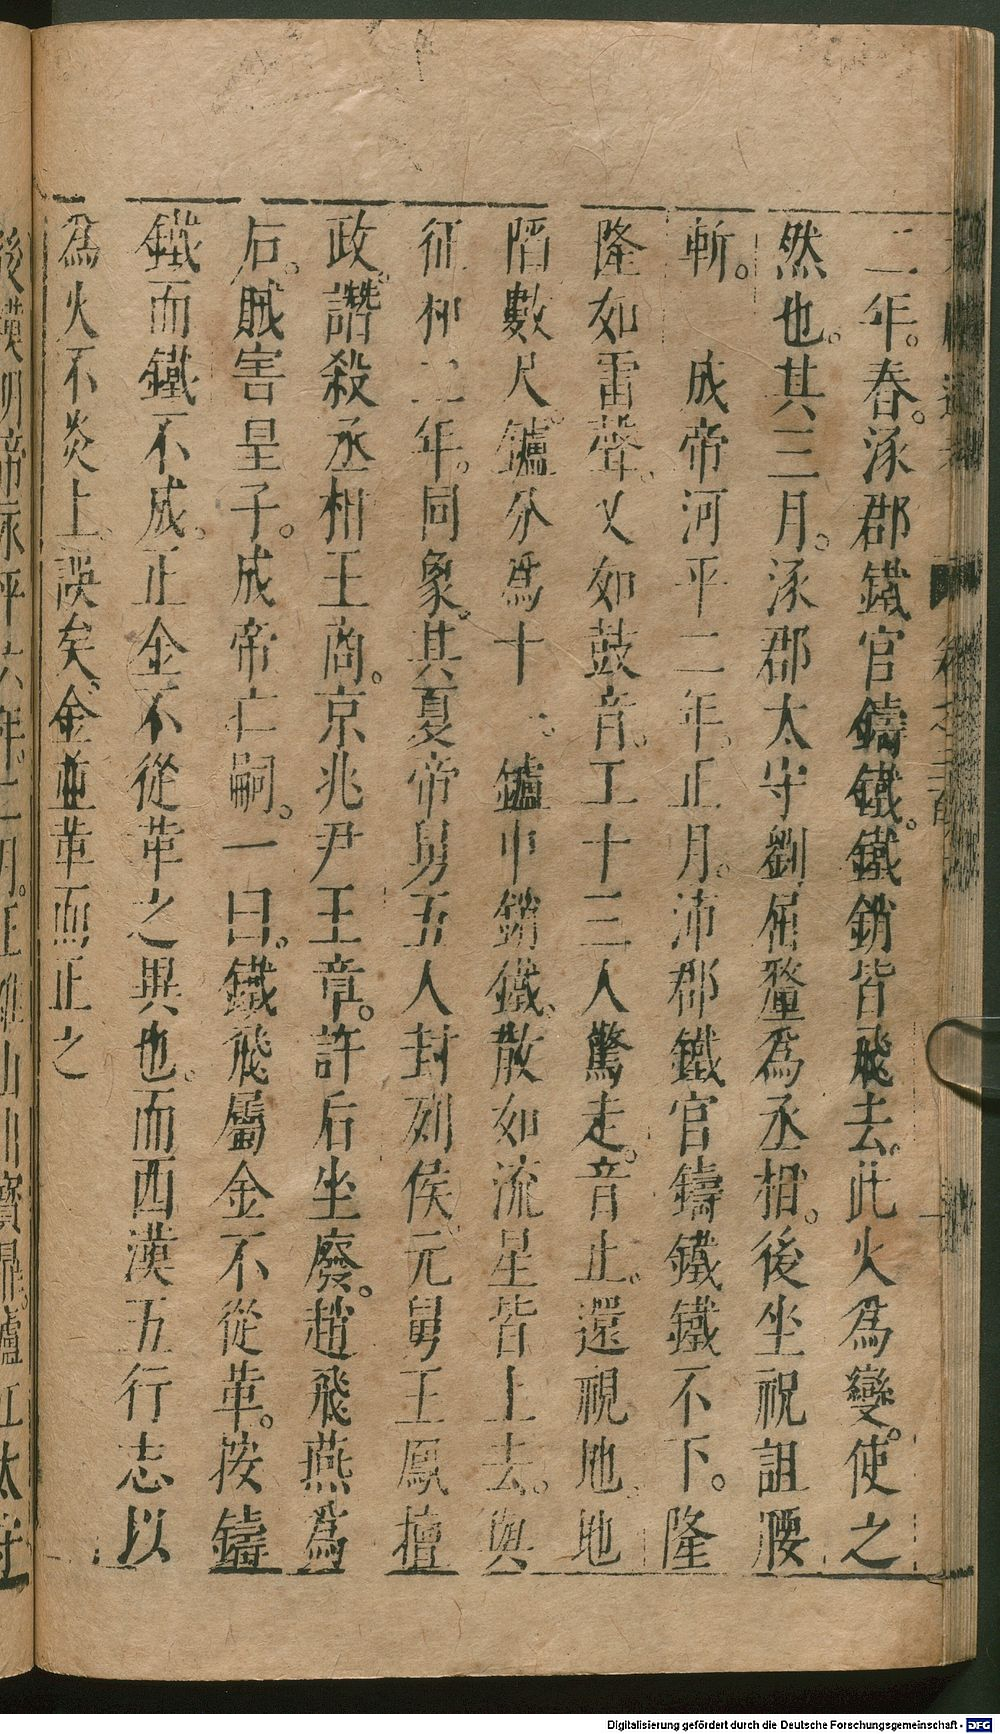 二年。春。涿郡鐵官鑄鐵。鐵銷皆飛去。此火為變。使之
然也。其三月。涿郡太守劉屈釐為丞相。後坐祝詛腰
斬。　成帝河平二年。正月。沛郡鐵官鑄鐵鐵不下。隆
隆如雷聲。又如鼓音。工十三人驚走。音止。還視地。地
陷數尺。鑪分為十一。鑪中銷鐵。散如流星皆上去。與
征和二年。同象。其夏帝舅五人封列侯。元舅王鳳擅
政。譖殺丞相王商。京兆尹王章。許后坐廢。趙飛燕為
后。賊害皇子。成帝亡嗣。一曰。鐵飛屬金不從革。按鑄
鐵而鐵不成。正金不從革之異也。而西漢五行志以
為火不炎上。誤矣。金並革而正之
後漢明帝永平六年。二月。王雒山出寶鼎。廬江太守
Digitalisierung gefördert durch die Deutsche Forschungsgemeinschaft - DFG